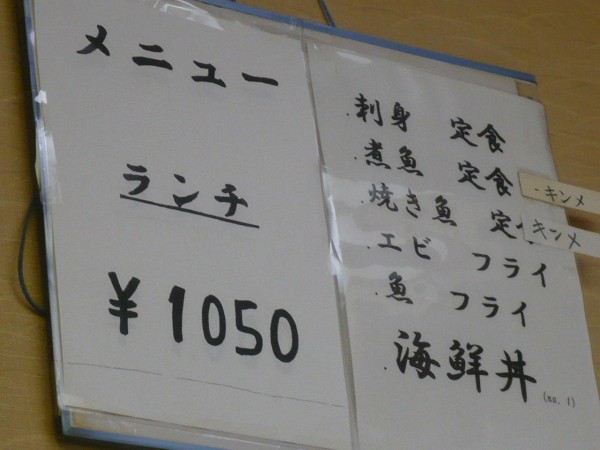 メニュー
ランチ
¥1050
刺身 定食
・煮魚 定食
・焼き魚 定
・エビ フライ
・魚 フライ
・海鮮丼
(no.1)
・キンメ
キンメ